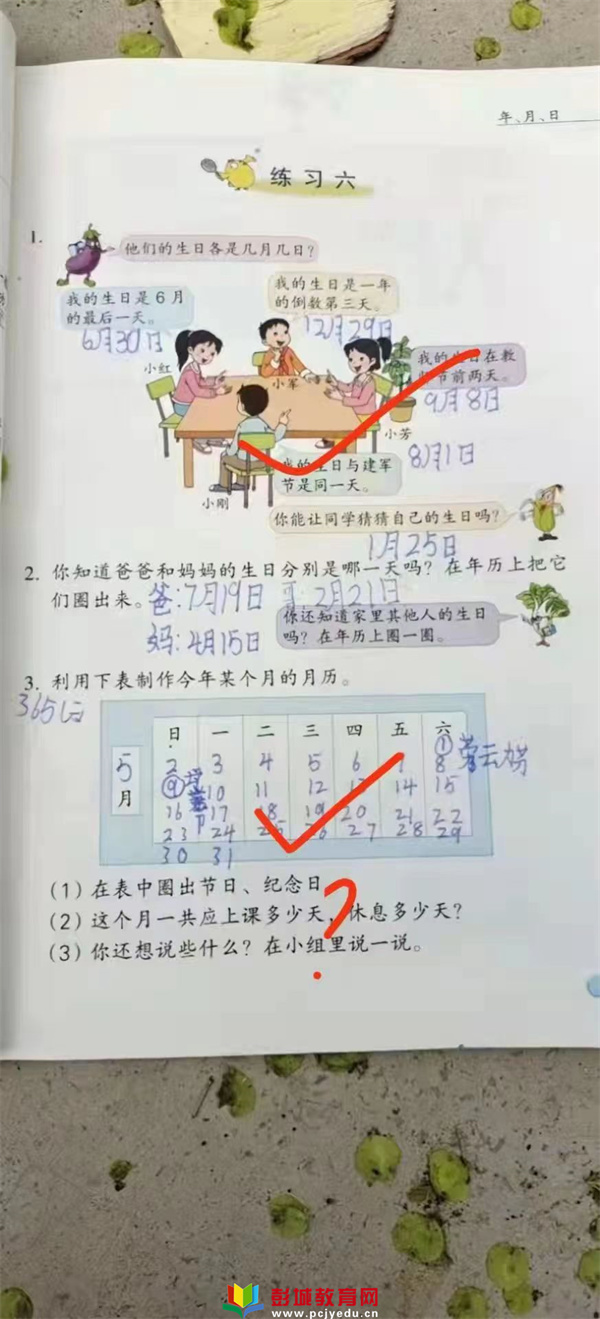 年、月、日
练习六
1.
他们的生日各是几月几日？
我的生日是6月
的最后一天。
6月30日
我的生日是一年
的倒数第三天。
12月29日
小红
小军
我的生日在教
师节前两天。
9月8日
小芳
我的生日与建军
节是同一天。
8月1日
小刚
你能让同学猜猜自己的生日吗？
1月25日
2. 你知道爸爸和妈妈的生日分别是哪一天吗？在年历上把它
们圈出来。爸：7月19日
2月21日
妈：4月15日
你还知道家里其他人的生日
吗？在年历上圈一圈。
3. 利用下表制作今年某个月的月历。
365
5
月
日 一 二 三 四 五 六
① 劳
2 3 4 5 6 7 8
⑨ 10 11 12 13 14 15
16 17 18 19 20 21 22
23 24 25 26 27 28 29
30 31
（1）在表中圈出节日、纪念日
（2）这个月一共应上课多少天，休息多少天？
（3）你还想说些什么？在小组里说一说。
？
彭城教育网
www.pcjyedu.cn